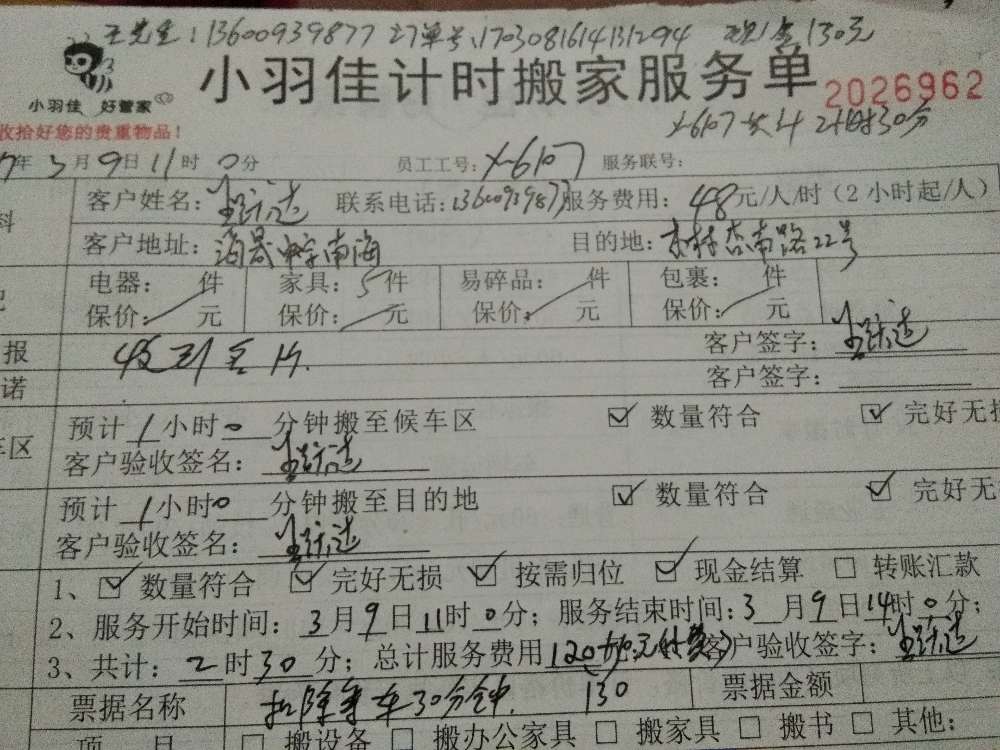 王先生:13600939877 订单号:1703081614131294 现金130元
小羽佳 好管家
小羽佳计时搬家服务单 2026962
收拾好您的贵重物品!
X-6107 共4 2小时30分
7年3月9日11时0分 员工工号:X-6107 服务联号:
客户姓名:王跃达 联系电话:13600939877 服务费用:48元/人/时(2小时起/人)
客户地址:海晟 南海 目的地:杏林杏南路22号
电器: 件 家具:5件 易碎品: 件 包裹: 件
保价: 元 保价: 元 保价: 元 保价: 元
报 收到 客户签字:王跃达
诺 客户签字:
预计1小时0分钟搬至候车区 ☑数量符合 ☑完好无损
车区
客户验收签名:王跃达
预计1小时0分钟搬至目的地 ☑数量符合 ☑完好无
客户验收签名:王跃达
1、☑数量符合 ☑完好无损 ☑按需归位 ☑现金结算 □转账汇款
2、服务开始时间:3月9日11时0分;服务结束时间:3月9日14时0分;
3、共计:2时30分;总计服务费用120 客户验收签字:王跃达
票据名称 扣除等车30分钟. 130 票据金额
项 目 □搬设备 □搬办公家具 □搬家具 □搬书 □其他: